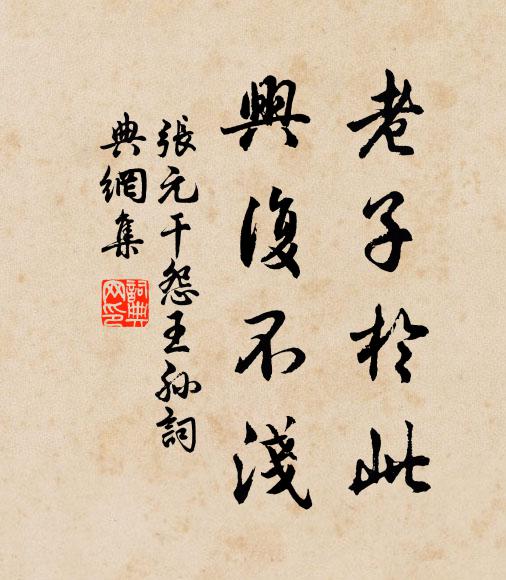 老子於此
興復不淺
張元干怨王孫詞
典網集
詞典網印